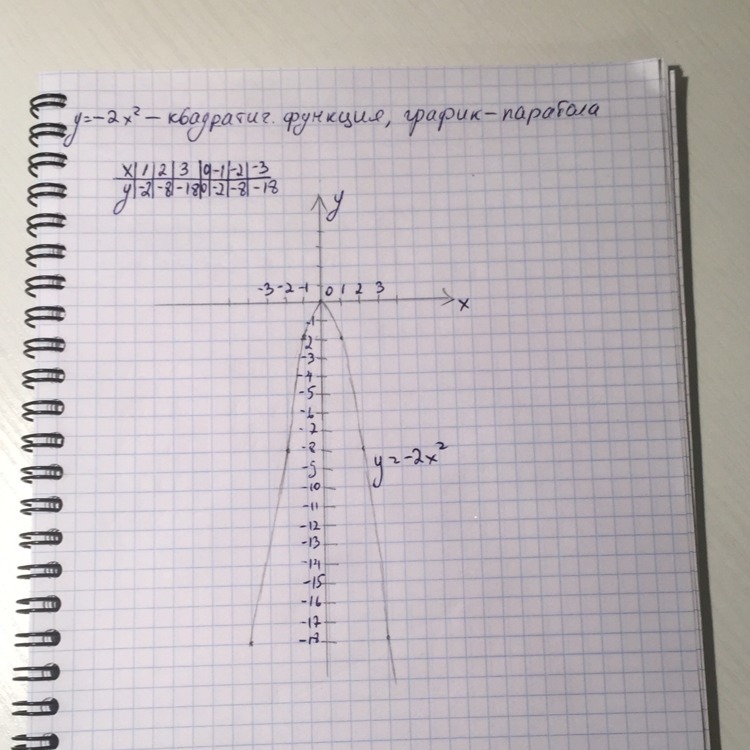 y=-2x² – квадратич. функция, график-парабола
x|1|2|3|0|-1|-2|-3
y|-2|-8|-18|0|-2|-8|-18
y
-3 -2 -1 0 1 2 3
x
-1
-2
-3
-4
-5
-6
-7
-8
-9
-10
-11
-12
-13
-14
-15
-16
-17
-18
y=-2x²